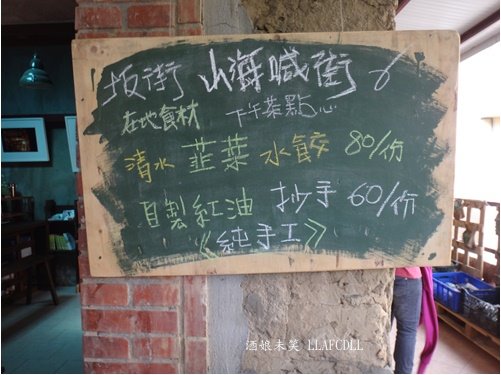 坂街 山海喊街
在地食材 下午茶點心
清水 韭菜 水餃 80/份
自製紅油 抄手 60/份
《純手工》
酒娘未笑 LLAFCDLL